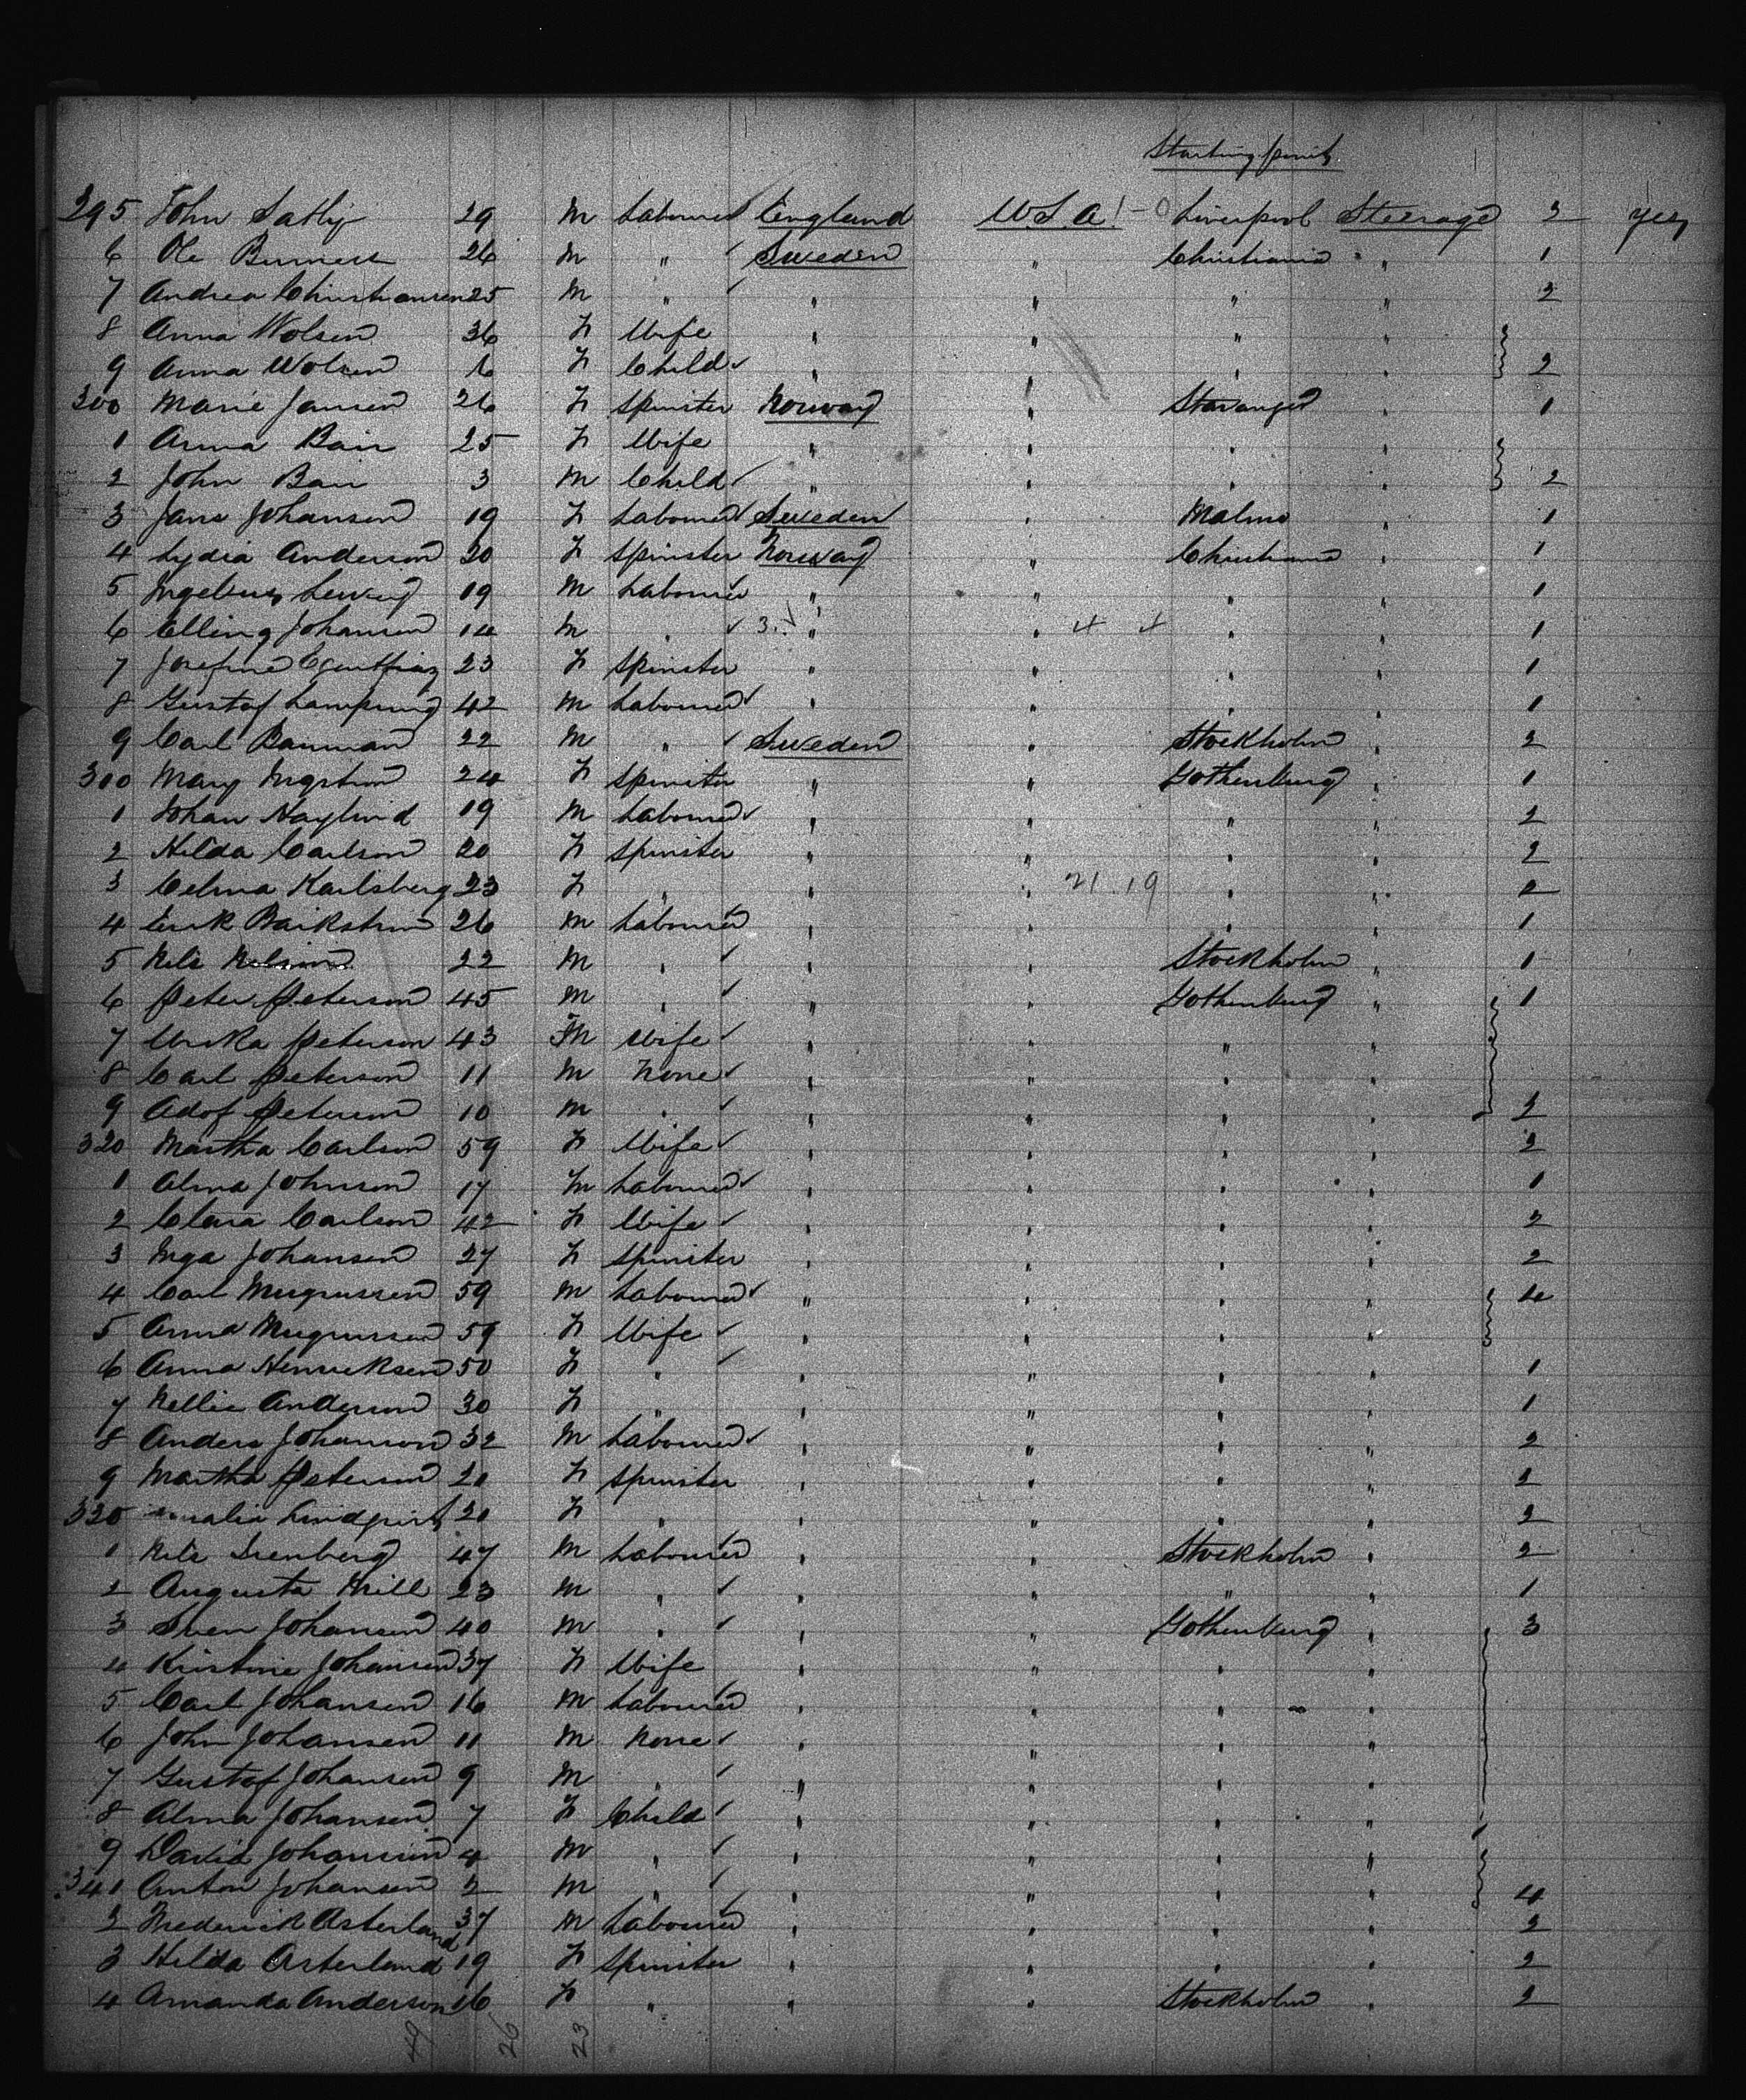 Starting point
295 John 29 M Labourer England U.S.A. Liverpool Steerage 2 yes
6 Ole 26 M " Sweden " Christiania " 1
7 Andrea Christiansen 25 M " " " " " 2
8 Anna Wolsen 36 F Wife " " " "
9 Anna Wolsen 6 F Child " " " " 2
300 Marie Jansen 26 F Spinster Norway " Stavanger " 1
1 Anna Bair 25 F Wife " " " "
2 John Bair 3 M Child " " " " 2
3 Jans Johansen 19 F Labourer Sweden " Malmo " 1
4 Lydia Anderson 20 F Spinster Norway " Christiania " 1
5 19 M Labourer " " " " 1
6 Elling Johansen 14 M " " " " " 1
7 Josefine 23 F Spinster " " " " 1
8 Gustof 42 M Labourer " " " " 1
9 Carl Bauman 22 M " Sweden " Stockholm " 2
300 Mary 24 F Spinster " " Gothenburg " 1
1 Johan 19 M Labourer " " " " 2
2 Hilda Carlson 20 F Spinster " " " " 2
3 Celma Karlsberg 23 F " " " 21 19 " " 2
4 Erik 26 M Labourer " " " " 1
5 Nils Nelson 22 M " " " Stockholm " 1
6 Peter Peterson 45 M " " " Gothenburg " 1
7 Peterson 43 Wife " " " "
8 Carl Peterson 11 M None " " " "
9 Adof Peterson 10 M " " " " " 2
320 Martha Carlson 59 F Wife " " " " 2
1 Alma Johnson 17 M Labourer " " " " 1
2 Clara Carlson 42 F Wife " " " " 2
3 Inga Johansen 27 F Spinster " " " " 2
4 Carl 59 M Labourer " " " " 4
5 Anna 59 F Wife " " " "
6 Anna Henricksen 50 F " " " " " 1
7 Nellie Anderson 30 F " " " " " 1
8 Anders Johanson 32 M Labourer " " " " 2
9 Martha Peterson 20 F Spinster " " " " 2
330 Lindqvist 20 F " " " " " 2
1 Nils 47 M Labourer " " Stockholm " 2
2 Augusta Hill 23 M " " " " " 1
3 Sven Johansen 40 M " " " Gothenburg " 3
4 Kristine Johansen 37 F Wife " " " "
5 Carl Johansen 16 M Labourer " " " "
6 John Johansen 11 M None " " " "
7 Gustof Johansen 9 M " " " " "
8 Alma Johansen 7 F Child " " " "
9 David Johansen 4 M " " " " "
341 Anton Johansen 2 M " " " " " 4
2 Frederick Osterland 37 M Labourer " " " " 2
3 Hilda Osterland 19 F Spinster " " " " 2
4 Amanda Anderson 16 F " " " Stockholm " 2
49 26 23